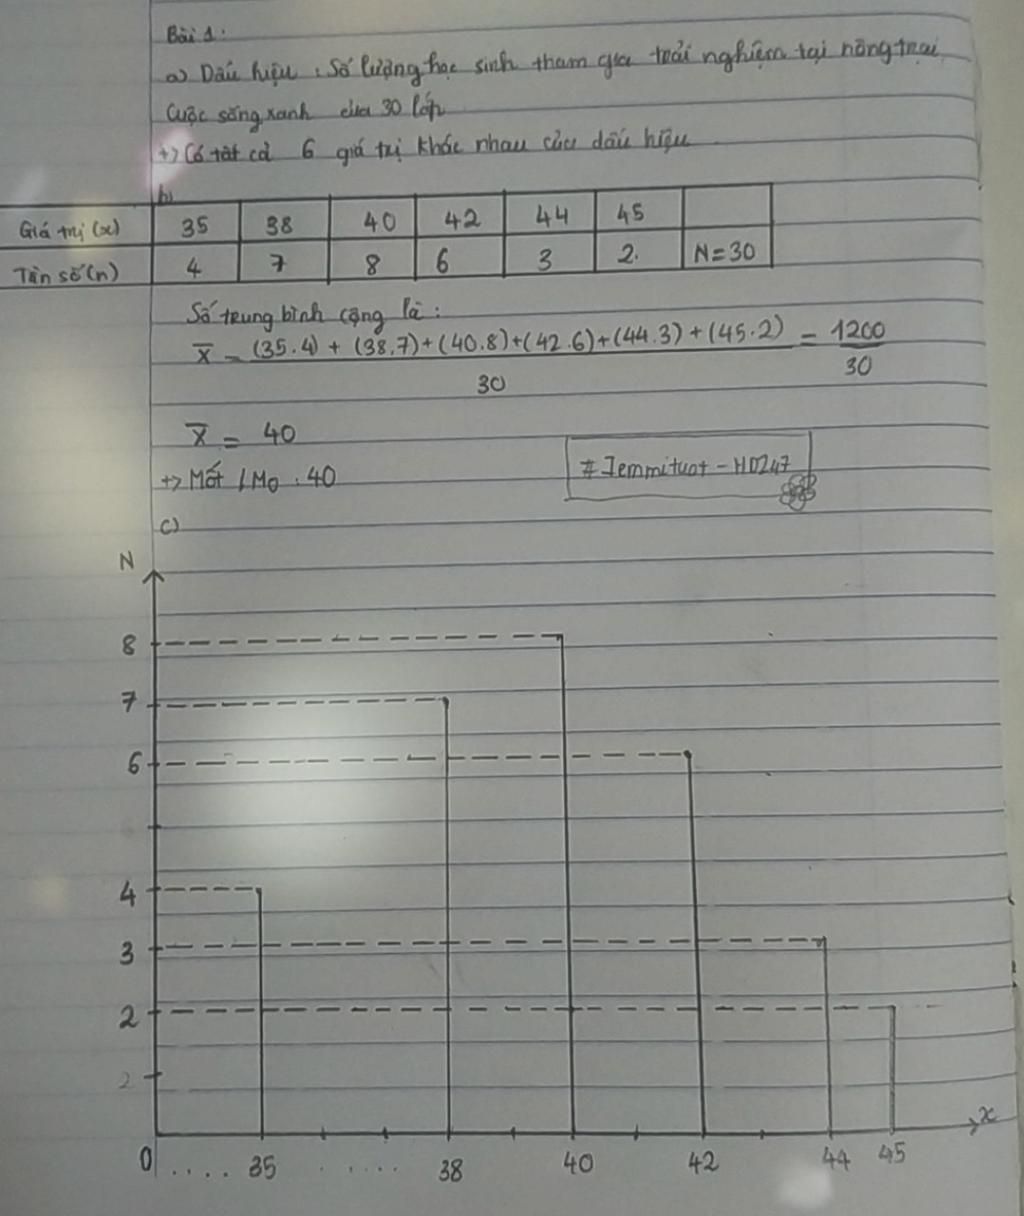 Bài 1:
a) Dấu hiệu : Số lượng học sinh tham gia trải nghiệm tại nông trại
Cuộc sống xanh của 30 lớp
+> Có tất cả 6 giá trị khác nhau của dấu hiệu
b)
Giá trị (x) 35 38 40 42 44 45
Tần số (n) 4 7 8 6 3 2. N=30
Số trung bình cộng là :
X̄ = (35.4) + (38.7)+(40.8)+(42.6)+(44.3)+(45.2) = 1200
30 30
X̄ = 40
+> Mốt /M₀ . 40
#Jemmituot - HD247
c)
N
8
7
6
4
3
2
2
0 .... 35 ..... 38 40 42 44 45 x